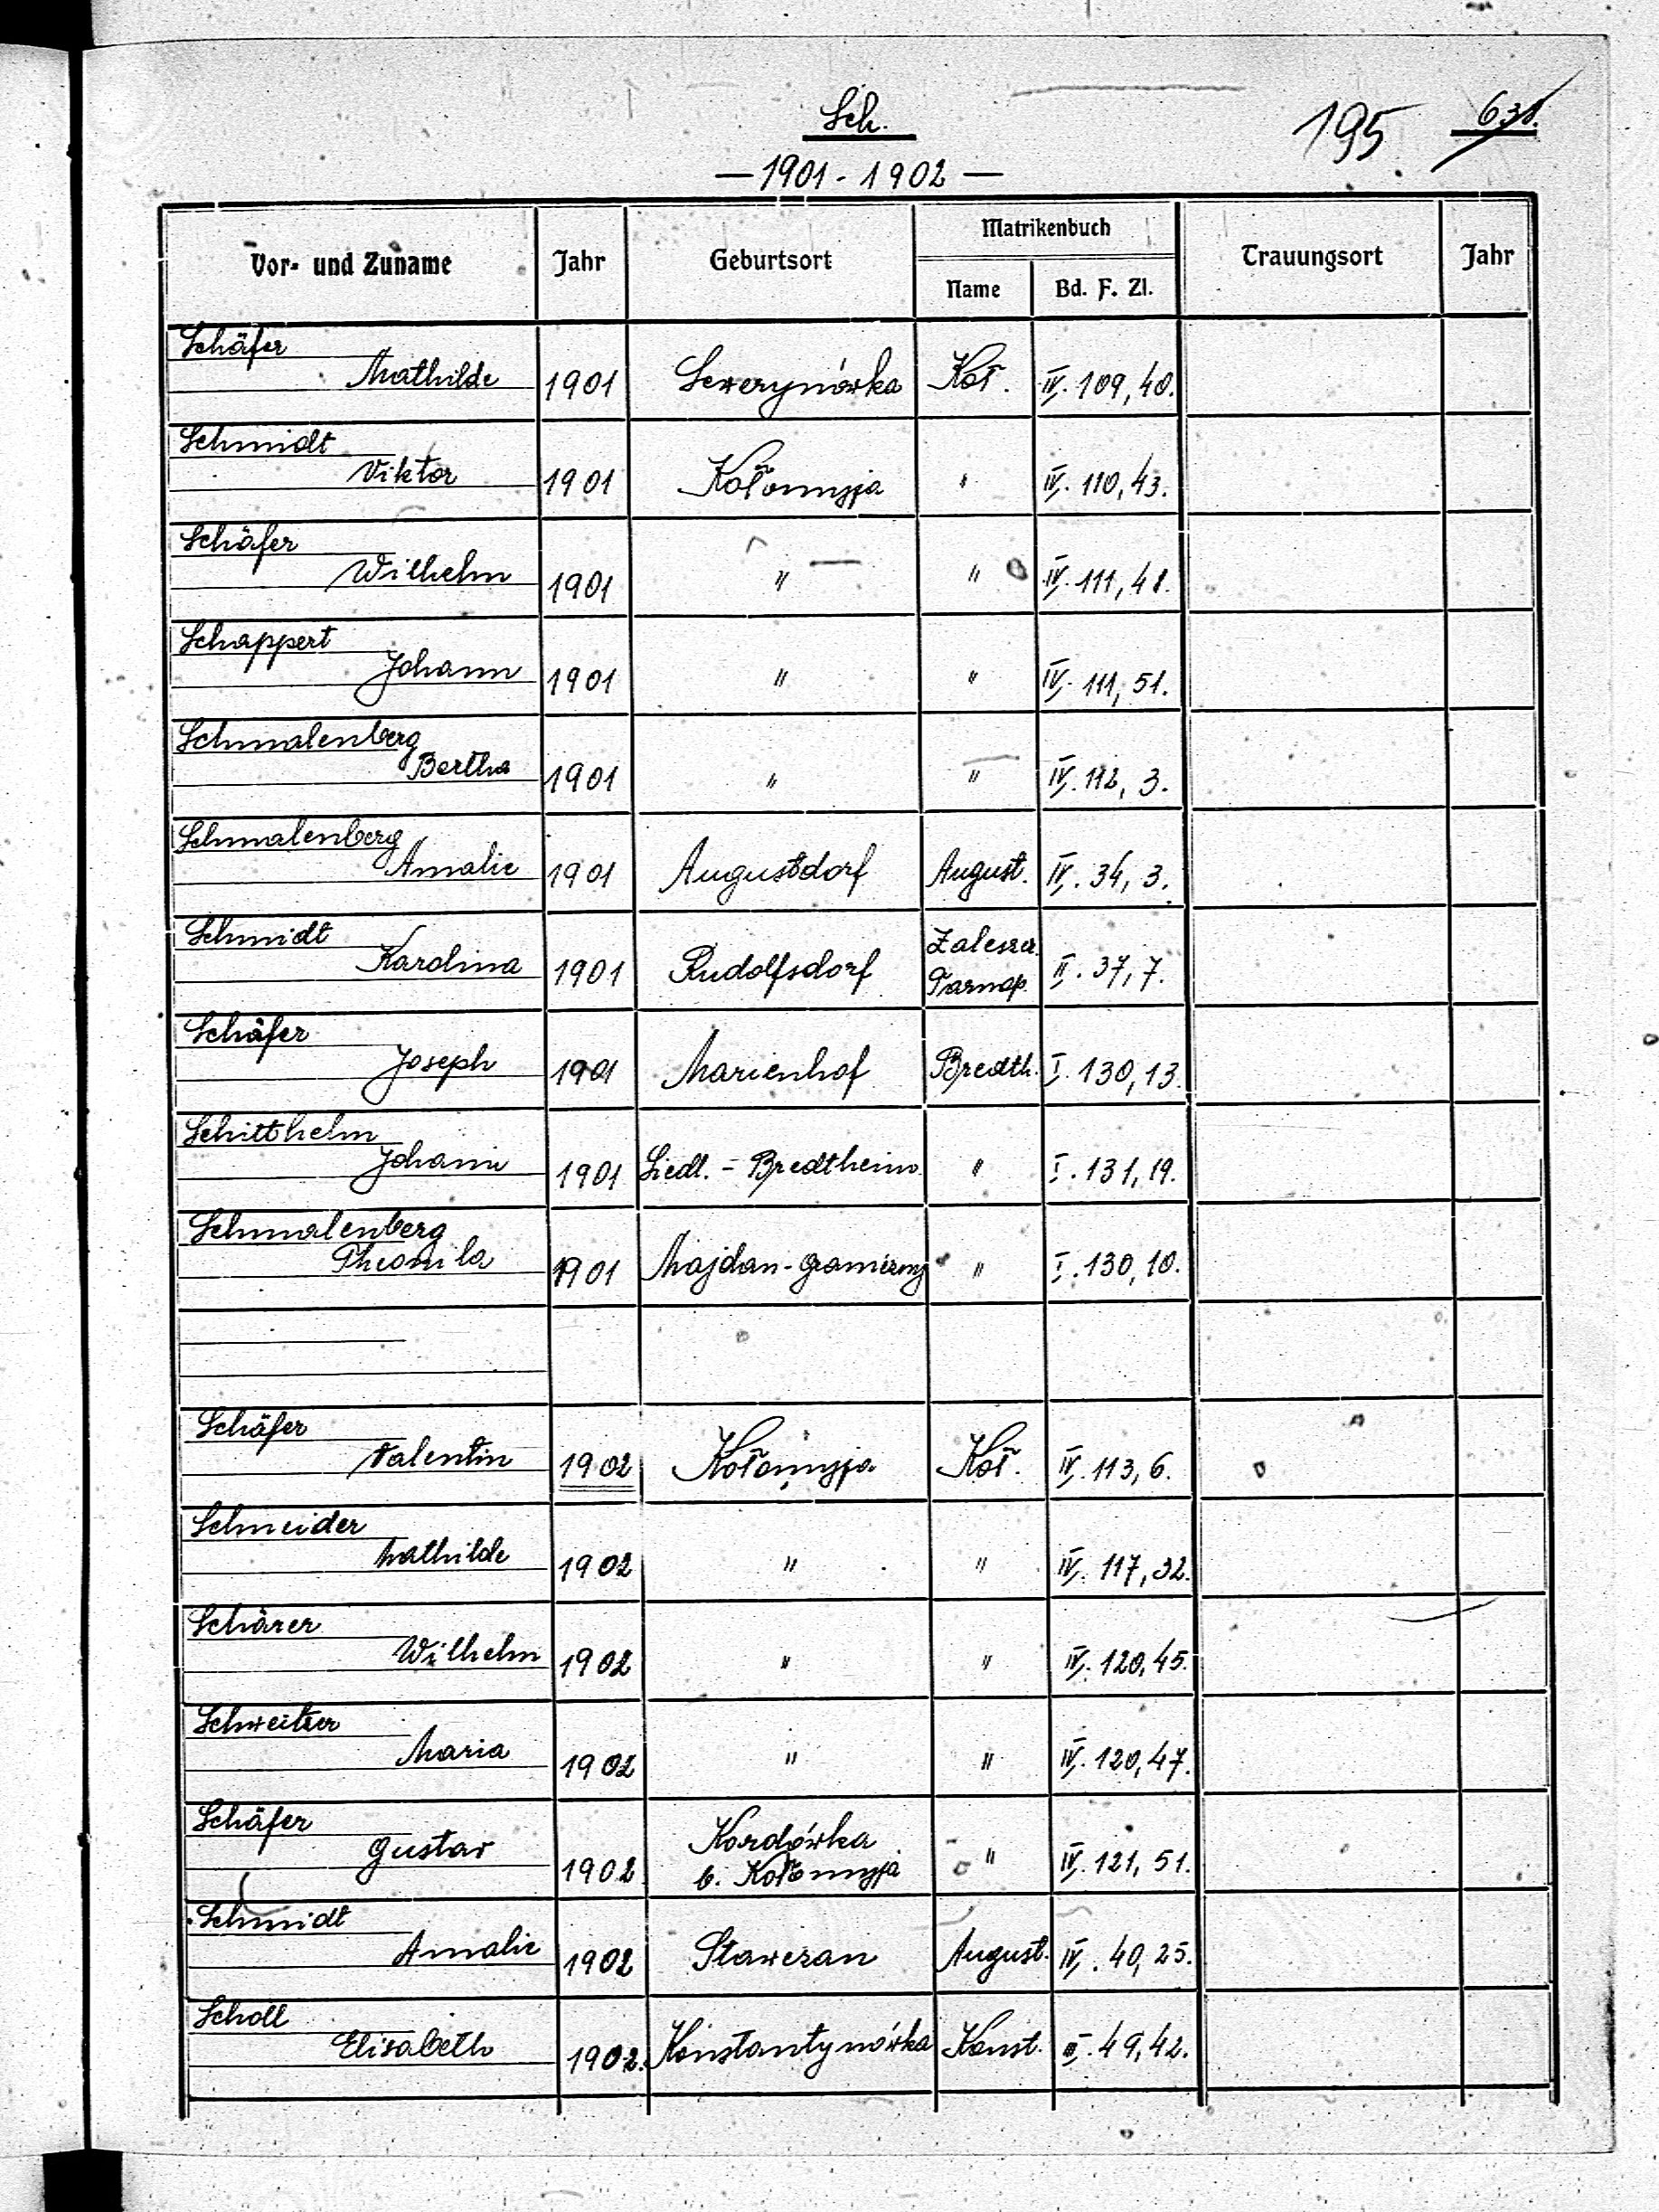 Sch.
195 638.
— 1901 - 1902 —
Vor- und Zuname Jahr Geburtsort Matrikenbuch Trauungsort Jahr
Name Bd. F. Zl.
Schäfer
Mathilde 1901 Sewerynówka Koł. IV. 109, 40.
Schmidt
Viktor 1901 Kołomyja " IV. 110, 43.
Schäfer
Wilhelm 1901 " " IV. 111, 48.
Schappert
Johann 1901 " " IV. 111, 51.
Schmalenberg
Bertha 1901 " " IV. 112, 3.
Schmalenberg
Amalie 1901 Augustdorf August. IV. 34, 3.
Schmidt
Karolina 1901 Rudolfsdorf Zaleszcz. Tarnop. II. 37, 7.
Schäfer
Joseph 1901 Marienhof Bredth. I. 130, 13.
Schitthelm
Johann 1901 Siedl. - Bredtheim " I. 131, 19.
Schmalenberg
Theomila 1901 Majdan-graniczny " I. 130, 10.
Schäfer
Valentin 1902 Kołomyja Koł. IV. 113, 6.
Schneider
Mathilde 1902 " " IV. 117, 32.
Schärer
Wilhelm 1902 " " IV. 120, 45.
Schweitzer
Maria 1902 " " IV. 120, 47.
Schäfer
Gustav 1902 Kordówka " IV. 121, 51.
b. Kołomyja
Schmidt
Amalie 1902 Stawczan August. IV. 40, 25.
Scholl
Elisabeth 1902. Konstantynówka Konst. III. 49, 42.